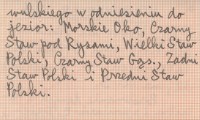 wulskiego w odniesieniu do
jezior: Morskie Oko, Czarny
Staw pod Rysami, Wielki Staw
Polski, Czarny Staw Gąs., Zadni
Staw Polski i Przedni Staw
Polski.